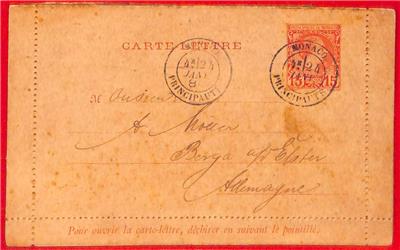 CARTE-LETTRE
MONACO
24
PRINCIPAUTÉ
MONACO
24
PRINCIPAUTÉ
15 15
M
A Moser
Berga a/d Elster
Allemagne
Pour ouvrir la carte-lettre, déchirer en suivant le pointillé.